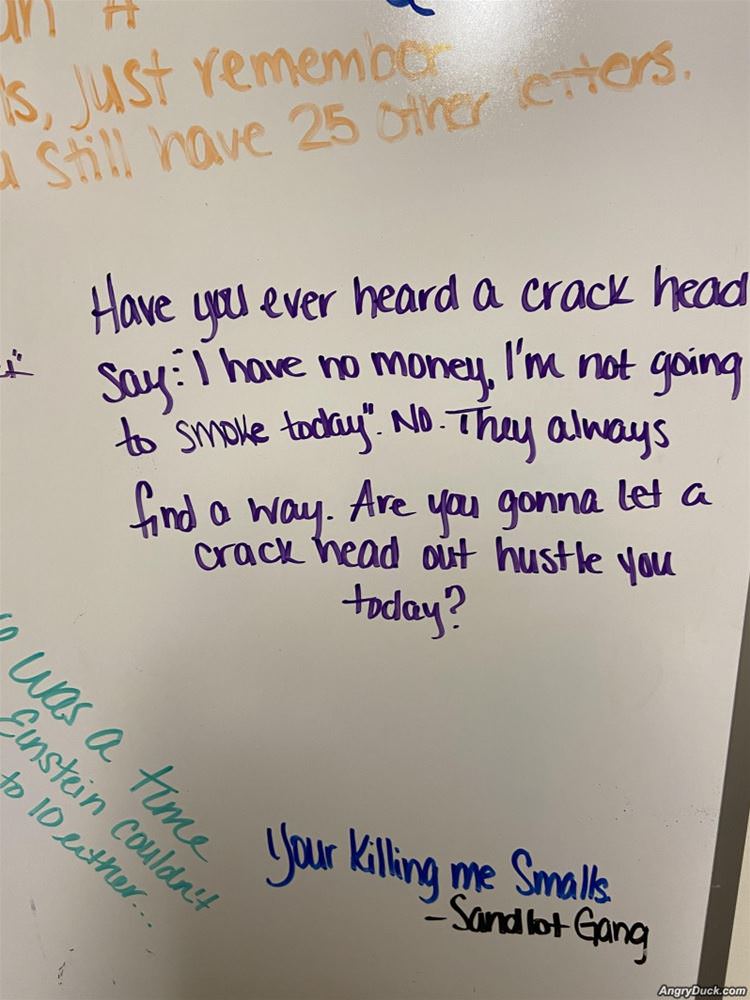 ls, just remember
u still have 25 other letters.
Have you ever heard a crack head
say: "I have no money, I'm not going
to smoke today". No. They always
find a way. Are you gonna let a
crack head out hustle you
today?
was a time
Einstein couldn't
to 10 either...
Your Killing me Smalls.
- Sandlot Gang
AngryDuck.com